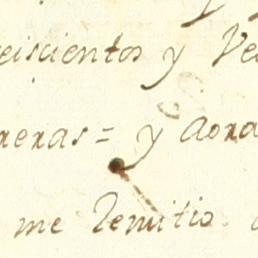 eiscientos y Ve
reras = y aora
me Remitio